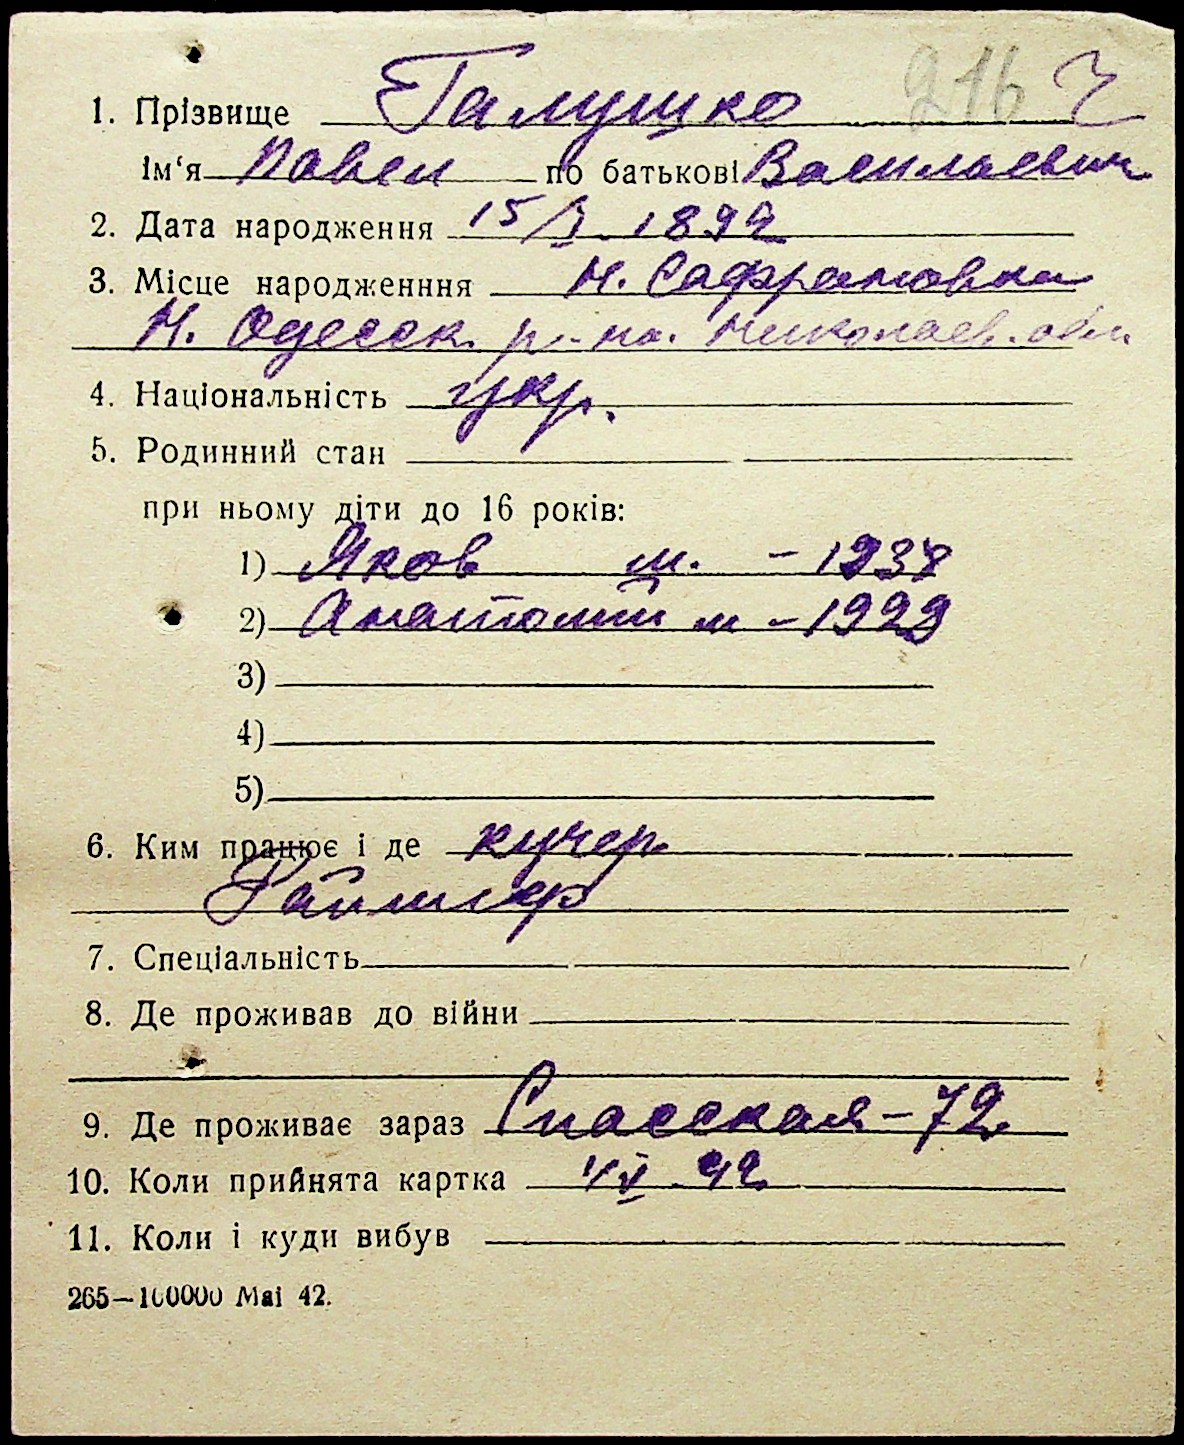 216 Г
1. Прізвище Галушко
Ім‘я Павел по батькові Васильевич
2. Дата народження 15/I. 1892
3. Місце народженння Н. Сафроновка
Н. Одесск. р-на. Николаев. обл.
4. Національність укр.
5. Родинний стан
при ньому діти до 16 років:
1) Яков м. – 1937
2) Анатолий м – 1929
3)
4)
5)
6. Ким працює і де кучер
7. Спеціальність
8. Де проживав до війни
9. Де проживає зараз Спасская – 72
10. Коли прийнята картка V 42
11. Коли і куди вибув
265—100000 Mai 42.